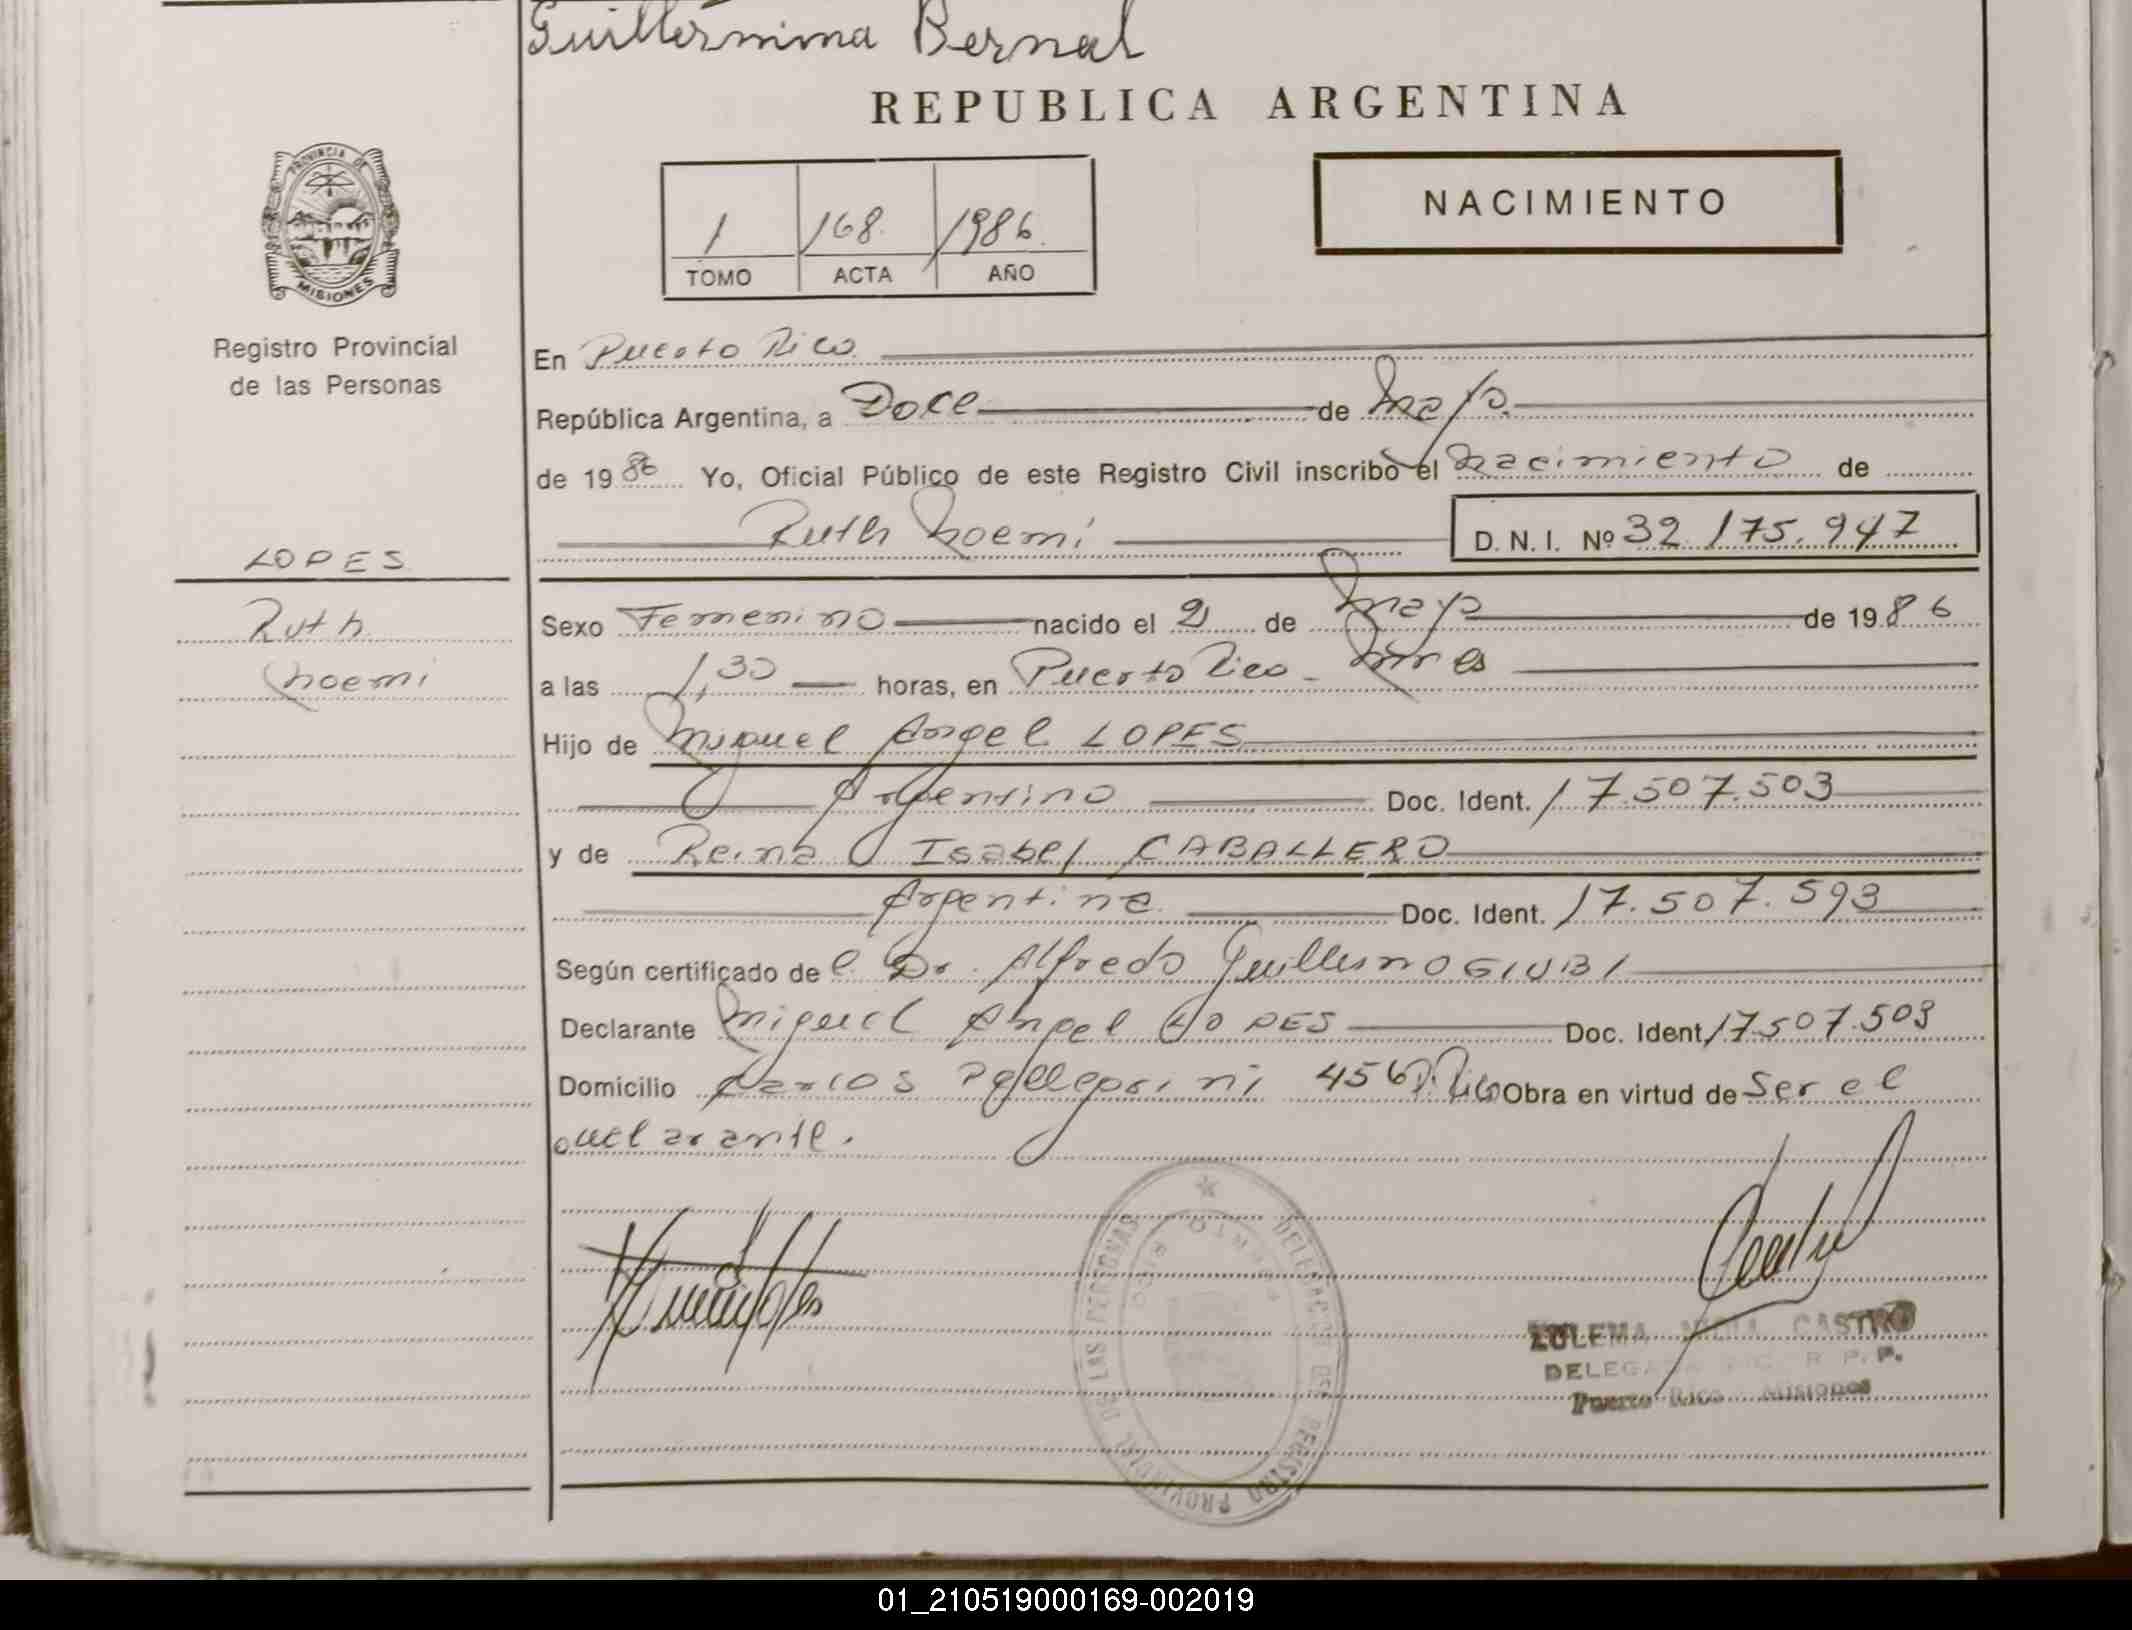 Guillermina Bernal
REPUBLICA ARGENTINA
PROVINCIA DE MISIONES
1 168 1986
TOMO ACTA AÑO
NACIMIENTO
Registro Provincial
de las Personas
En Puerto Rico
República Argentina, a Doce de Mayo
de 1986 Yo, Oficial Público de este Registro Civil inscribo el Nacimiento de
Ruth Noemi D. N. I. Nº 32.175.947
LOPES
Ruth
Noemi
Sexo Femenino nacido el 2 de Mayo de 1986
a las 1,30 horas, en Puerto Rico - Mnes
Hijo de Miguel Angel LOPES
Argentino Doc. Ident. 17.507.503
y de Reina Isabel CABALLERO
Argentina Doc. Ident. 17.507.593
Según certificado del Dr. Alfredo Guillermo GIUBI
Declarante Miguel Angel LOPES Doc. Ident. 17.507.503
Domicilio Carlos Pellegrini 456 P. Rico Obra en virtud de Ser el
declarante.
DELEGACION DEL REGISTRO PROVINCIAL DE LAS PERSONAS
PUERTO RICO
ZULEMA CASTRO
DELEGADA R. P. P.
Puerto Rico - Misiones
01_210519000169-002019